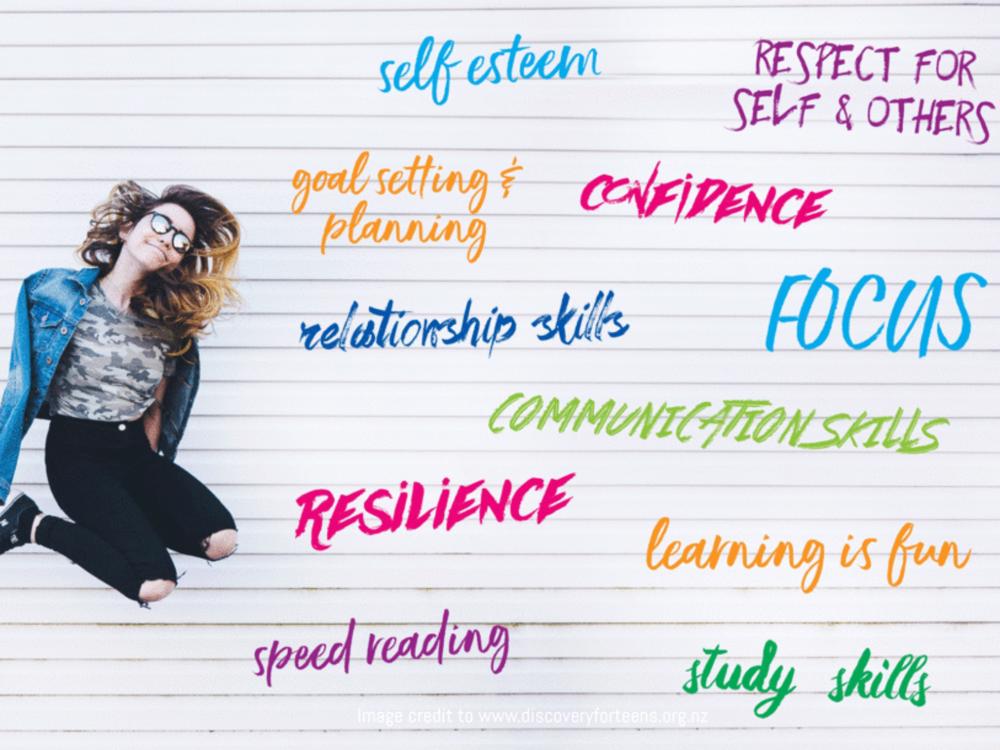 self esteem
RESPECT FOR
SELF & OTHERS
goal setting &
planning
CONFIDENCE
relationship skills
FOCUS
COMMUNICATION SKILLS
RESILIENCE
learning is fun
speed reading
study skills
Image credit to www.discoveryforteens.org.nz